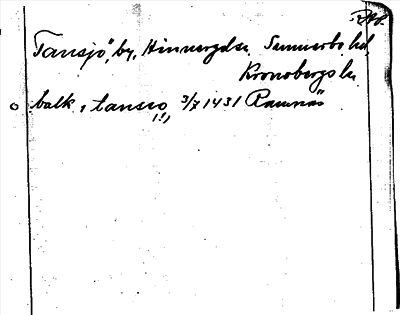 Tansjö, by, Hinneryds sn, Sunnerbo hd,
Kronobergs län
balk, i tanseo 3/7 1431 Ramnäs
(!)